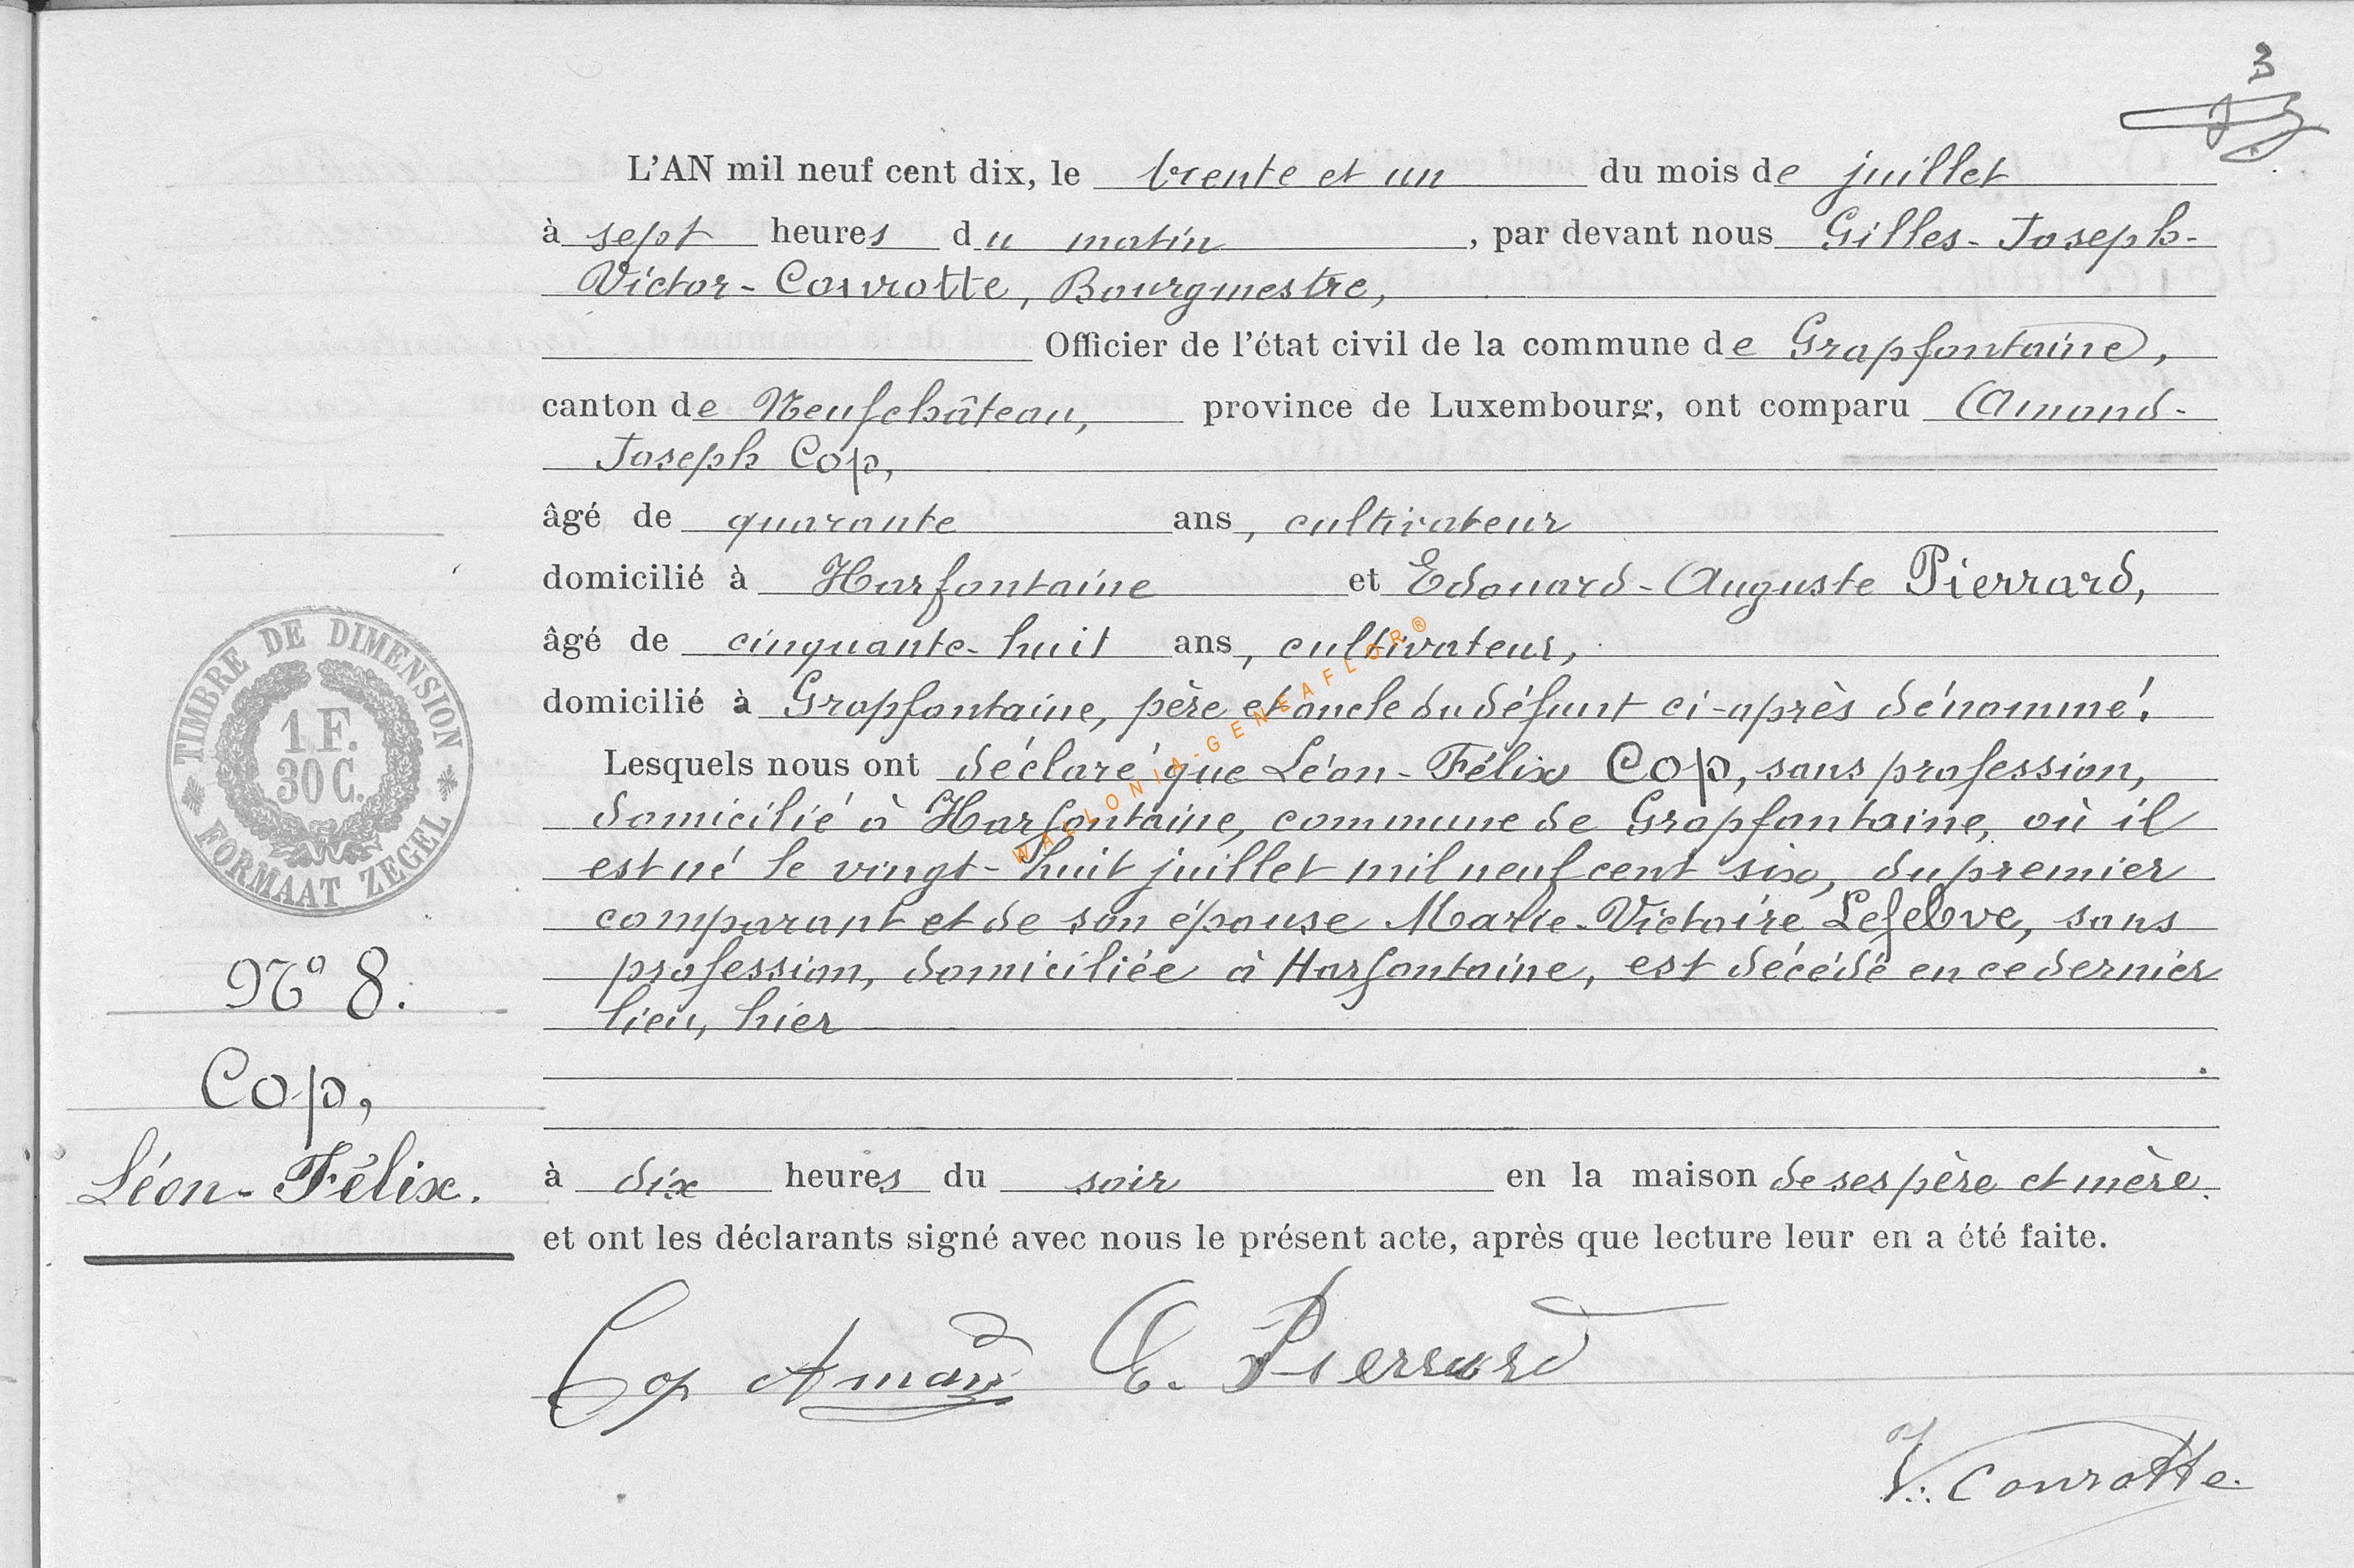 3
L'AN mil neuf cent dix, le trente et un du mois de juillet
à sept heures du matin, par devant nous Gilles-Joseph-
Victor-Conrotte, Bourgmestre,
Officier de l'état civil de la commune de Grapfontaine,
canton de Neufchâteau, province de Luxembourg, ont comparu Amand-
Joseph Cop,
âgé de quarante ans, cultivateur
domicilié à Harfontaine et Edouard-Auguste Pierrard,
âgé de cinquante-huit ans, cultivateur,
domicilié à Grapfontaine, père et oncle du défunt ci-après dénommé.
Lesquels nous ont déclaré que Léon-Félix Cop, sans profession,
domicilié à Harfontaine, commune de Grapfontaine, où il
est né le vingt-huit juillet mil neuf cent six, du premier
comparant et de son épouse Marie-Victoire Lefebve, sans
profession, domiciliée à Harfontaine, est décédé en ce dernier
lieu, hier
.
à dix heures du soir en la maison de ses père et mère.
et ont les déclarants signé avec nous le présent acte, après que lecture leur en a été faite.
Cop Amand E. Pierrard
V. Conrotte
TIMBRE DE DIMENSION
1 F.
30 C.
FORMAAT ZEGEL
N° 8.
Cop,
Léon-Félix.
WALLONIA-GENEAFLOR®